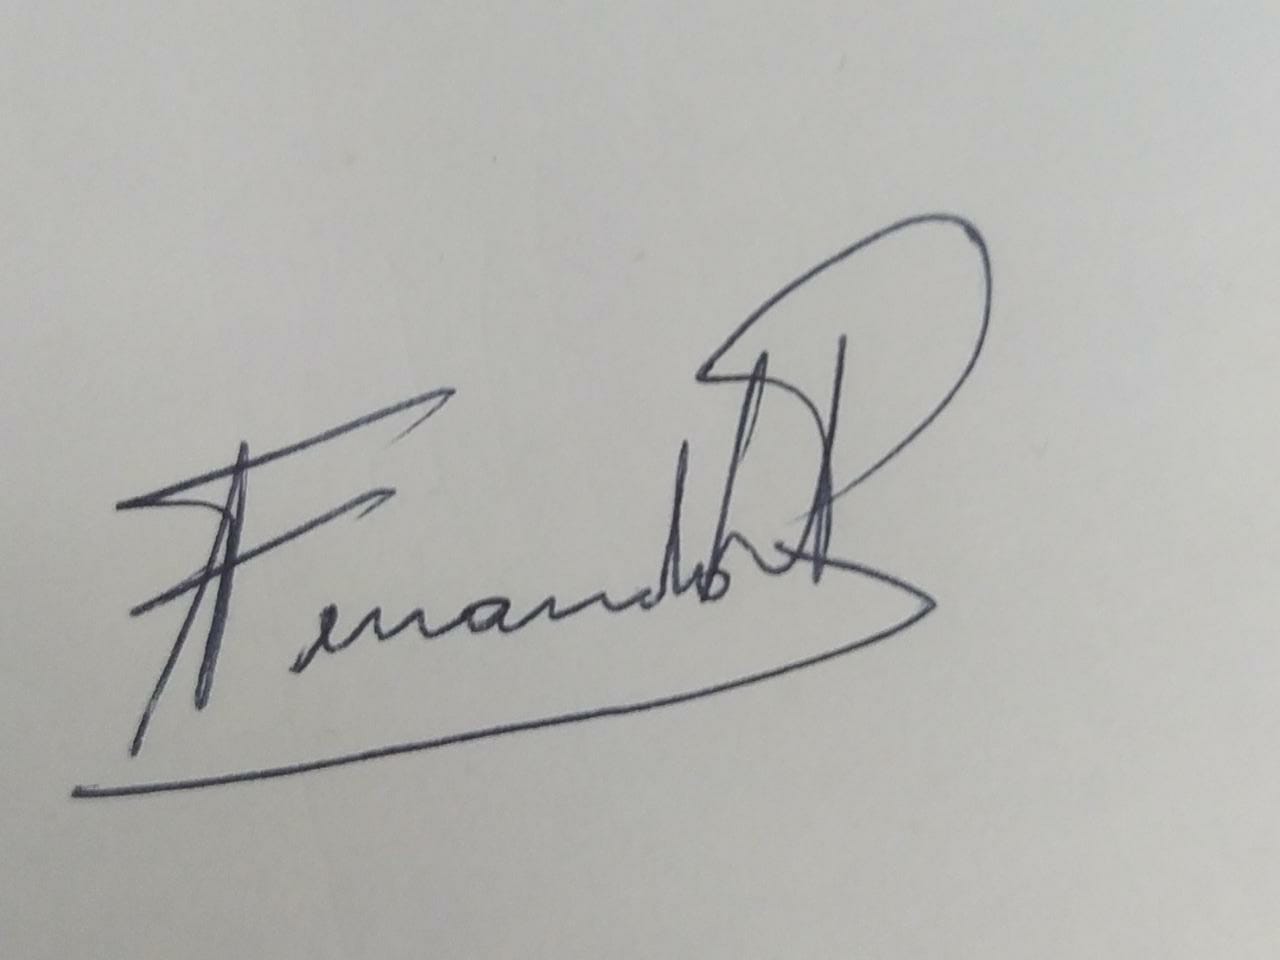 Fernando R